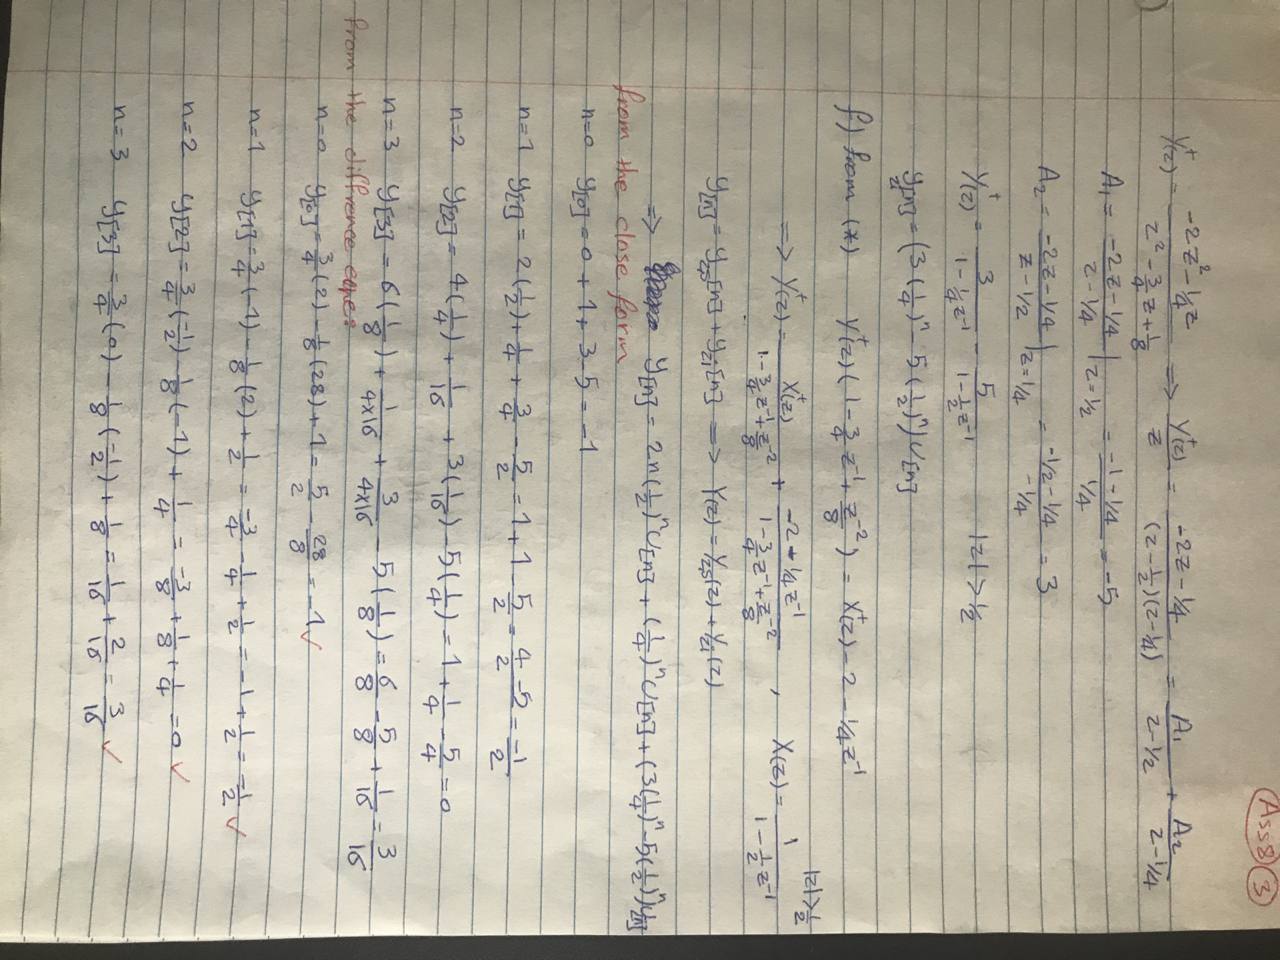 Ass8 3
Y⁺(z) = (-2z² - 1/4 z) / (z² - 3/4 z + 1/8) ⇒ Y⁺(z)/z = (-2z - 1/4) / ((z - 1/2)(z - 1/4)) = A₁/(z - 1/2) + A₂/(z - 1/4)
A₁ = (-2z - 1/4)/(z - 1/4) | z = 1/2 = (-1 - 1/4)/(1/4) = -5
A₂ = (-2z - 1/4)/(z - 1/2) | z = 1/4 = (-1/2 - 1/4)/(-1/4) = 3
Y⁺(z) = 3/(1 - 1/4 z⁻¹) - 5/(1 - 1/2 z⁻¹) |z| > 1/2
y_zi[n] = (3(1/4)ⁿ - 5(1/2)ⁿ) U[n]
f) from (*) Y⁺(z)(1 - 3/4 z⁻¹ + z⁻²/8) = X⁺(z) - 2 - 1/4 z⁻¹
⇒ Y⁺(z) = X⁺(z)/(1 - 3/4 z⁻¹ + z⁻²/8) + (-2 - 1/4 z⁻¹)/(1 - 3/4 z⁻¹ + z⁻²/8) , X(z) = 1/(1 - 1/2 z⁻¹) |z| > 1/2
y[n] = y_zs[n] + y_zi[n] ⇒ Y(z) = Y_zs(z) + Y_zi(z)
⇒ y[n] = 2n(1/2)ⁿ U[n] + (1/4)ⁿ U[n] + (3(1/4)ⁿ - 5(1/2)ⁿ) U[n]
from the close form
n=0 y[0] = 0 + 1 + 3 - 5 = -1
n=1 y[1] = 2(1/2) + 1/4 + 3/4 - 5/2 = 1 + 1 - 5/2 = (4-5)/2 = -1/2
n=2 y[2] = 4(1/4) + 1/16 + 3(1/16) - 5(1/4) = 1 + 1/4 - 5/4 = 0
n=3 y[3] = 6(1/8) + 1/4×16 + 3/4×16 - 5(1/8) = 6/8 - 5/8 + 1/16 = 3/16
from the difference eqn:
n=0 y[0] = 3/4(2) - 1/8(28) + 1 = 5/2 - 28/8 = -1 ✓
n=1 y[1] = 3/4(-1) - 1/8(2) + 1/2 = -3/4 - 1/4 + 1/2 = -1 + 1/2 = -1/2 ✓
n=2 y[2] = 3/4(-1/2) - 1/8(-1) + 1/4 = -3/8 + 1/8 + 1/4 = 0 ✓
n=3 y[3] = 3/4(0) - 1/8(-1/2) + 1/8 = 1/16 + 2/16 = 3/16 ✓